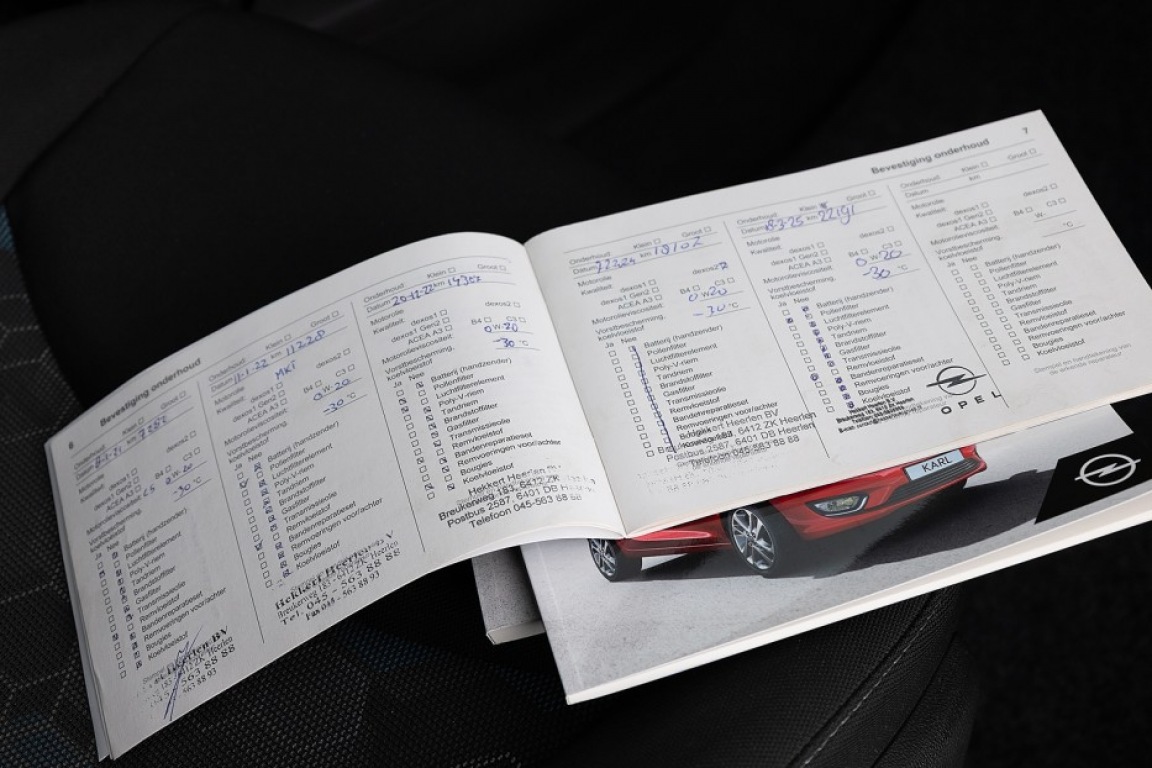 6
Bevestiging onderhoud
Onderhoud Klein Groot
Datum 8-1-21 km 7282
Motorolie
Kwaliteit dexos1 dexos2
dexos1 Gen2
ACEA A3 B4 C3
Motorolieviscositeit
Vorstbescherming,
koelvloeistof -30 °C
Ja Nee
Batterij
Pollenfilter
Luchtfilterelement
Poly-V-riem
Tandriem
Brandstoffilter
Gasfilter
Transmissieolie
Remvloeistof
Bandenreparatieset
Remvoeringen voor/achter
Bougies
Koelvloeistof
Heerlen BV
6412 ZK Heerlen
563 88 88
563 88 93
Onderhoud Klein Groot
Datum 11-1-22 km 11228
Motorolie
Kwaliteit dexos1 dexos2
dexos1 Gen2
ACEA A3 B4 C3
Motorolieviscositeit 0 W 20
Vorstbescherming,
koelvloeistof -30 °C
Ja Nee
Batterij (handzender)
Pollenfilter
Luchtfilterelement
Poly-V-riem
Tandriem
Brandstoffilter
Gasfilter
Transmissieolie
Remvloeistof
Bandenreparatieset
Remvoeringen voor/achter
Bougies
Koelvloeistof
Hekkert Heerlen BV
Breukerweg 183, 6412 ZC Heerlen
Tel. 045 - 563 88 88
Fax 045 - 563 88 93
Onderhoud Klein Groot
Datum 20-12-22 km 14307
Motorolie
Kwaliteit dexos1 dexos2
dexos1 Gen2
ACEA A3 B4 C3
Motorolieviscositeit 0 W 20
Vorstbescherming,
koelvloeistof -30 °C
Ja Nee
Batterij (handzender)
Pollenfilter
Luchtfilterelement
Poly-V-riem
Tandriem
Brandstoffilter
Gasfilter
Transmissieolie
Remvloeistof
Bandenreparatieset
Remvoeringen voor/achter
Bougies
Koelvloeistof
Hekkert Heerlen
Breukerweg 183, 6412 ZK
Postbus 2587, 6401 DB Heerlen
Telefoon 045-563 88 88
7
Bevestiging onderhoud
Onderhoud Klein Groot
Datum km 19102
Motorolie
Kwaliteit dexos1 dexos2
dexos1 Gen2
ACEA A3 B4 C3
Motorolieviscositeit 0 W 20
Vorstbescherming,
koelvloeistof -30 °C
Ja Nee
Batterij (handzender)
Pollenfilter
Luchtfilterelement
Poly-V-riem
Tandriem
Brandstoffilter
Gasfilter
Transmissieolie
Remvloeistof
Bandenreparatieset
Remvoeringen voor/achter
Bougies
Koelvloeistof
Hekkert Heerlen BV
183, 6412 ZK Heerlen
Postbus 2587, 6401 DB Heerlen
Telefoon 045-563 88 88
Onderhoud Klein Groot
Datum 8-3-25 km 22191
Motorolie
Kwaliteit dexos1 dexos2
dexos1 Gen2
ACEA A3 B4 C3
Motorolieviscositeit 0 W 20
Vorstbescherming,
koelvloeistof -30 °C
Ja Nee
Batterij (handzender)
Pollenfilter
Luchtfilterelement
Poly-V-riem
Tandriem
Brandstoffilter
Gasfilter
Transmissieolie
Remvloeistof
Bandenreparatieset
Remvoeringen voor/achter
Bougies
Koelvloeistof
OPEL
Onderhoud Klein Groot
Datum km
Motorolie
Kwaliteit dexos1 dexos2
dexos1 Gen2
ACEA A3 B4 C3
Motorolieviscositeit W
Vorstbescherming,
koelvloeistof °C
Ja Nee
Batterij (handzender)
Pollenfilter
Luchtfilterelement
Poly-V-riem
Tandriem
Brandstoffilter
Gasfilter
Transmissieolie
Remvloeistof
Bandenreparatieset
Remvoeringen voor/achter
Bougies
Koelvloeistof
Stempel en handtekening van
de erkende reparateur
KARL